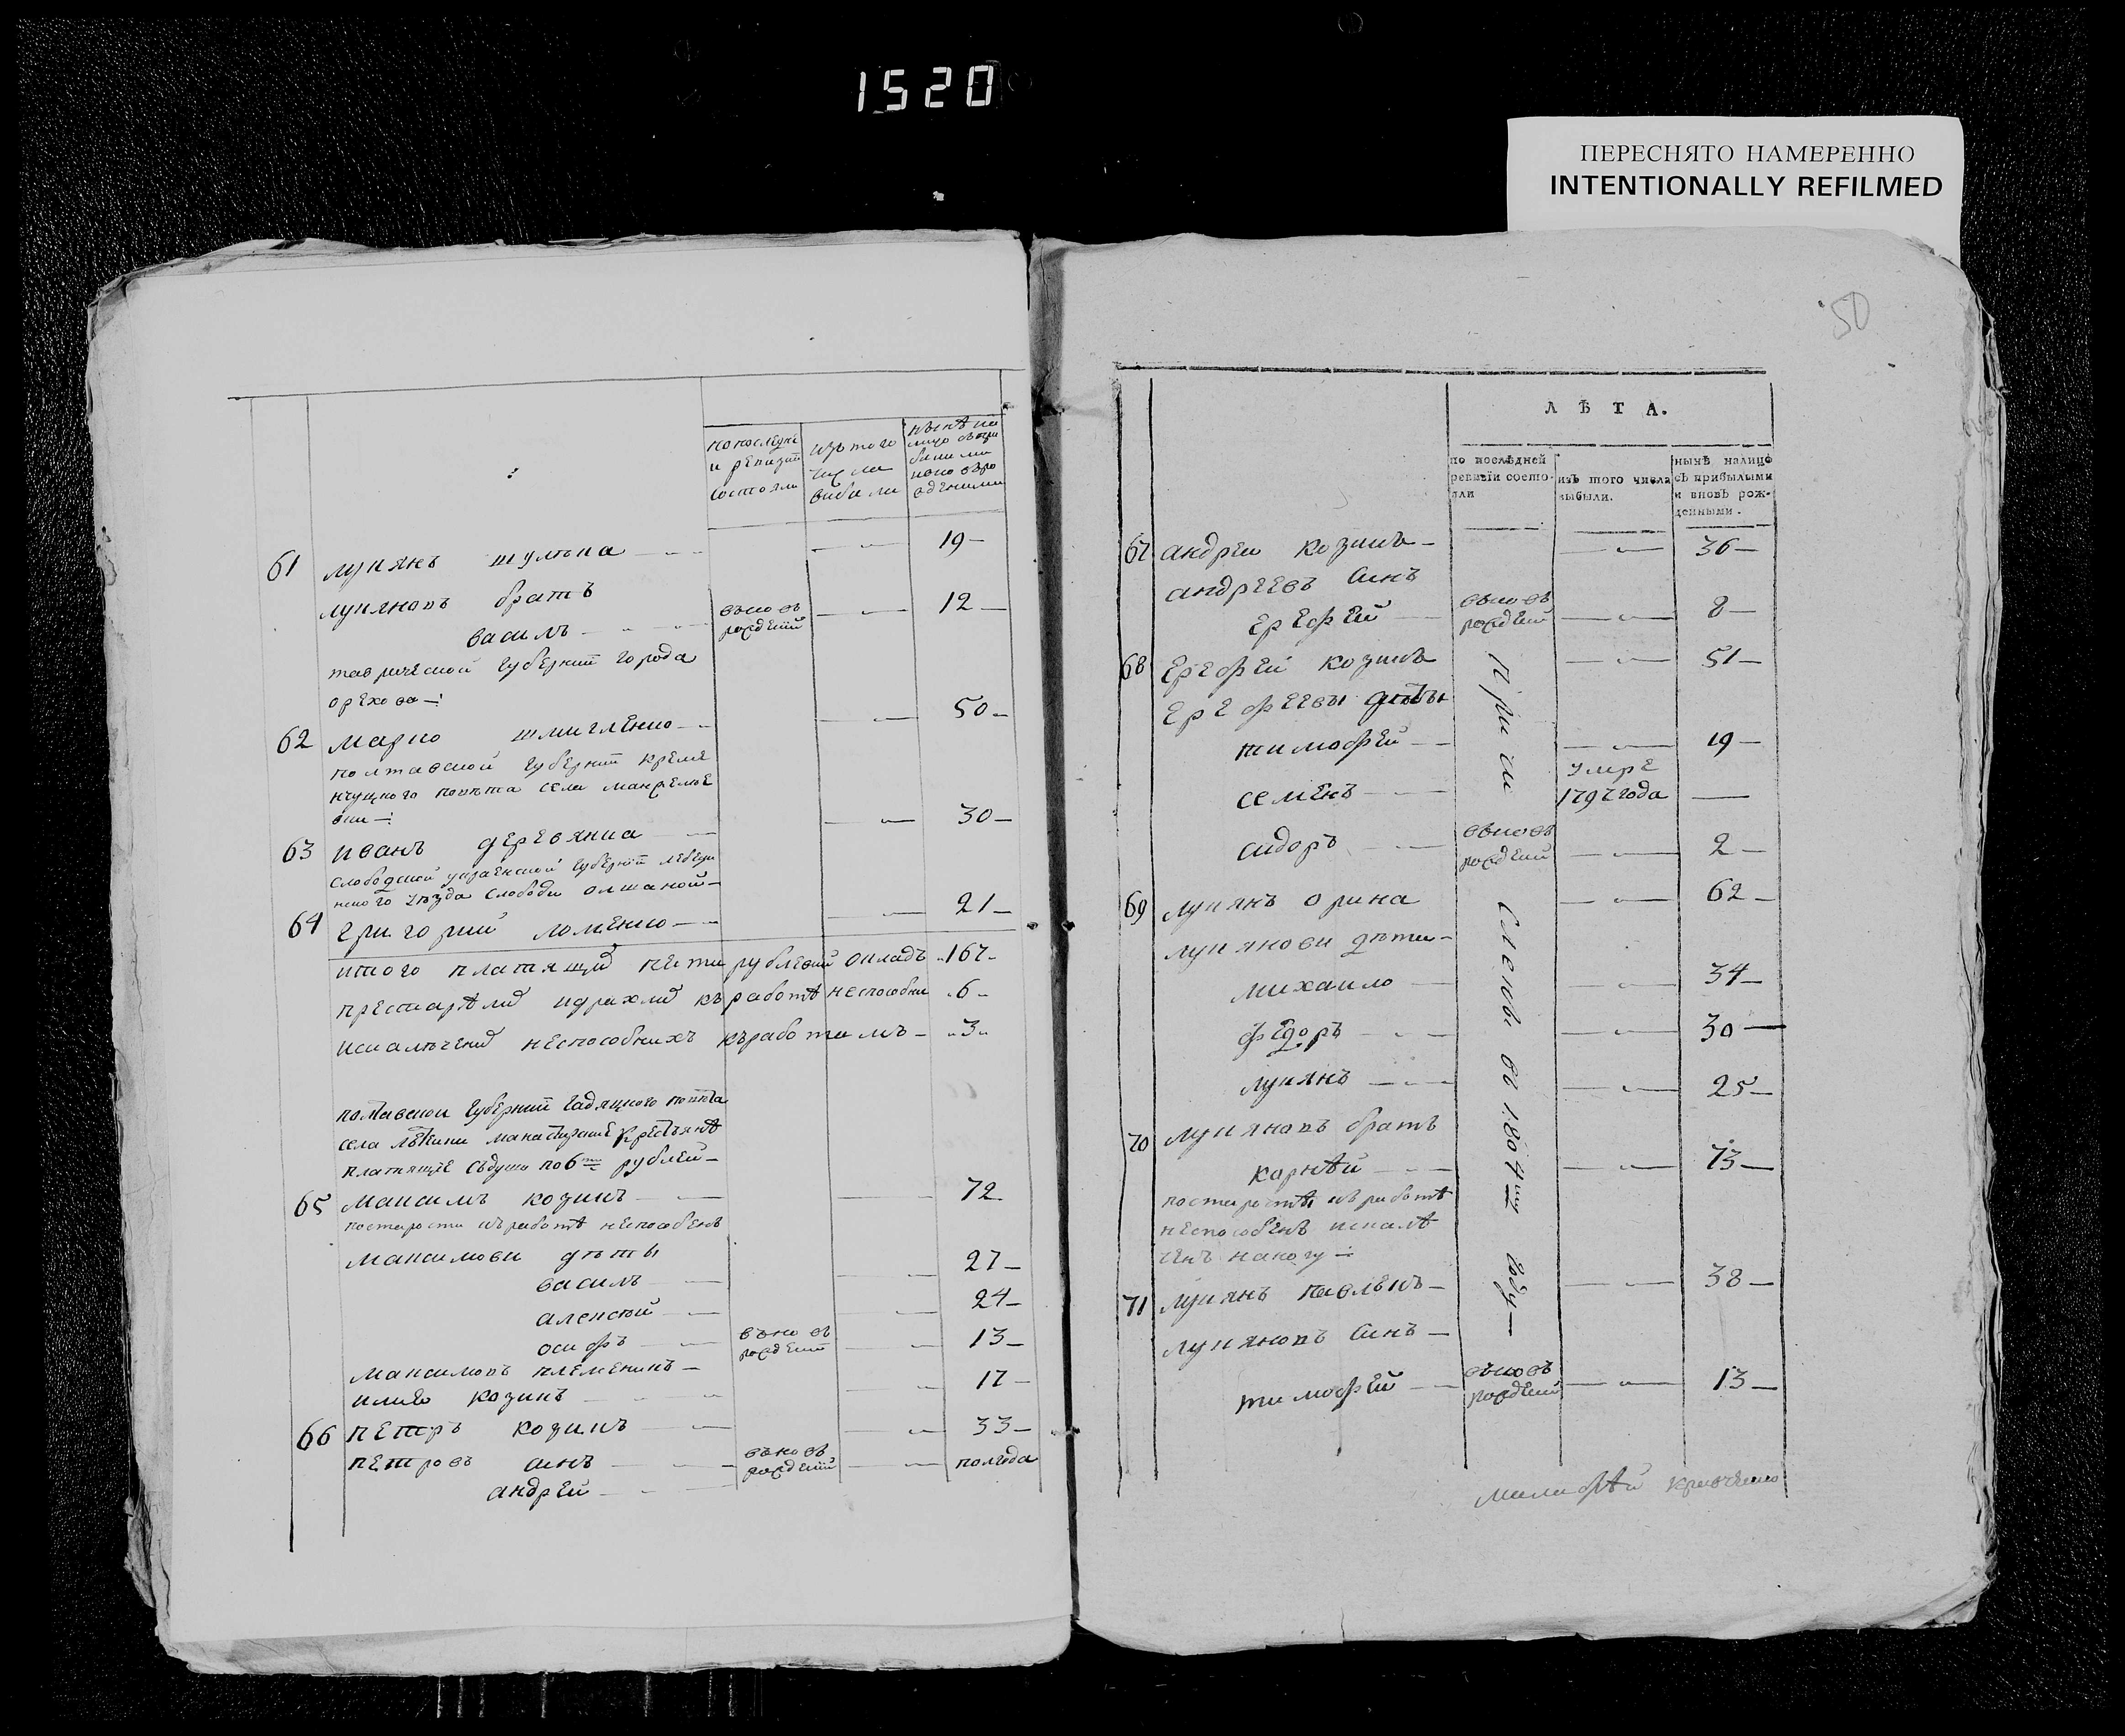 1520
ПЕРЕСНЯТО НАМЕРЕННО
INTENTIONALLY REFILMED
по последне
и ревизии
состояли
изъ того
числа
выбили
нынѣ на
лицо
61 лукянъ шулика 19
лукяновъ братъ
василъ вьновъ рожденій 12
таврической губернии города
орехова
62 марко шмигленко 50
полтавской губернии креме
нчуцкого повѣта села манжелее
вки
63 иванъ деревянка 30
слободской украенской губернии лебедин
ского уѣзда слободы олшаной
64 григорий ломенко 21
итого платящих пети рублевий окладъ 167
престарѣлих идряхлих къ работѣ неспособни 6
искалѣчених неспособнихъ къработимъ 3
полтавской губернии гадяцкого повѣта
села
платящие съдуши по 6ти рублей
65 максимъ козинъ 72
постарости къ работѣ неспособенъ
максимови дѣты
василъ 27
алексѣй 24
осифъ вьновъ рожденій 13
максимовъ племеникъ
илико козинъ 17
66 петръ козинъ 33
петровъ синъ вьновъ рожденій полгода
андрей
50
ЛѢТА.
по послѣдней
ревизіи состо-
яли
изъ того числа
выбыли.
нынѣ налицо
съ прибылыми
и вновь рож-
денными.
67 андреи козинъ 36
андреевъ синъ
ерефей вьновъ рожденій 8
68 ерефей козинъ 51
ерефеевы дѣты
тимофей 19
семенъ умре 1797 года
сидоръ вьновъ рожденій 2
69 лукянъ орина 62
лукянови дѣти
михаило 34
федоръ 30
лукянъ 25
70 лукяновъ братъ
корнѣй 73
постаростѣ къ работѣ
неспособенъ искалѣ
ченъ наногу
71 лукянъ павлѣнъ 38
лукяновъ синъ
тимофей вьновъ рожденій 13
причисленны въ 1804му году